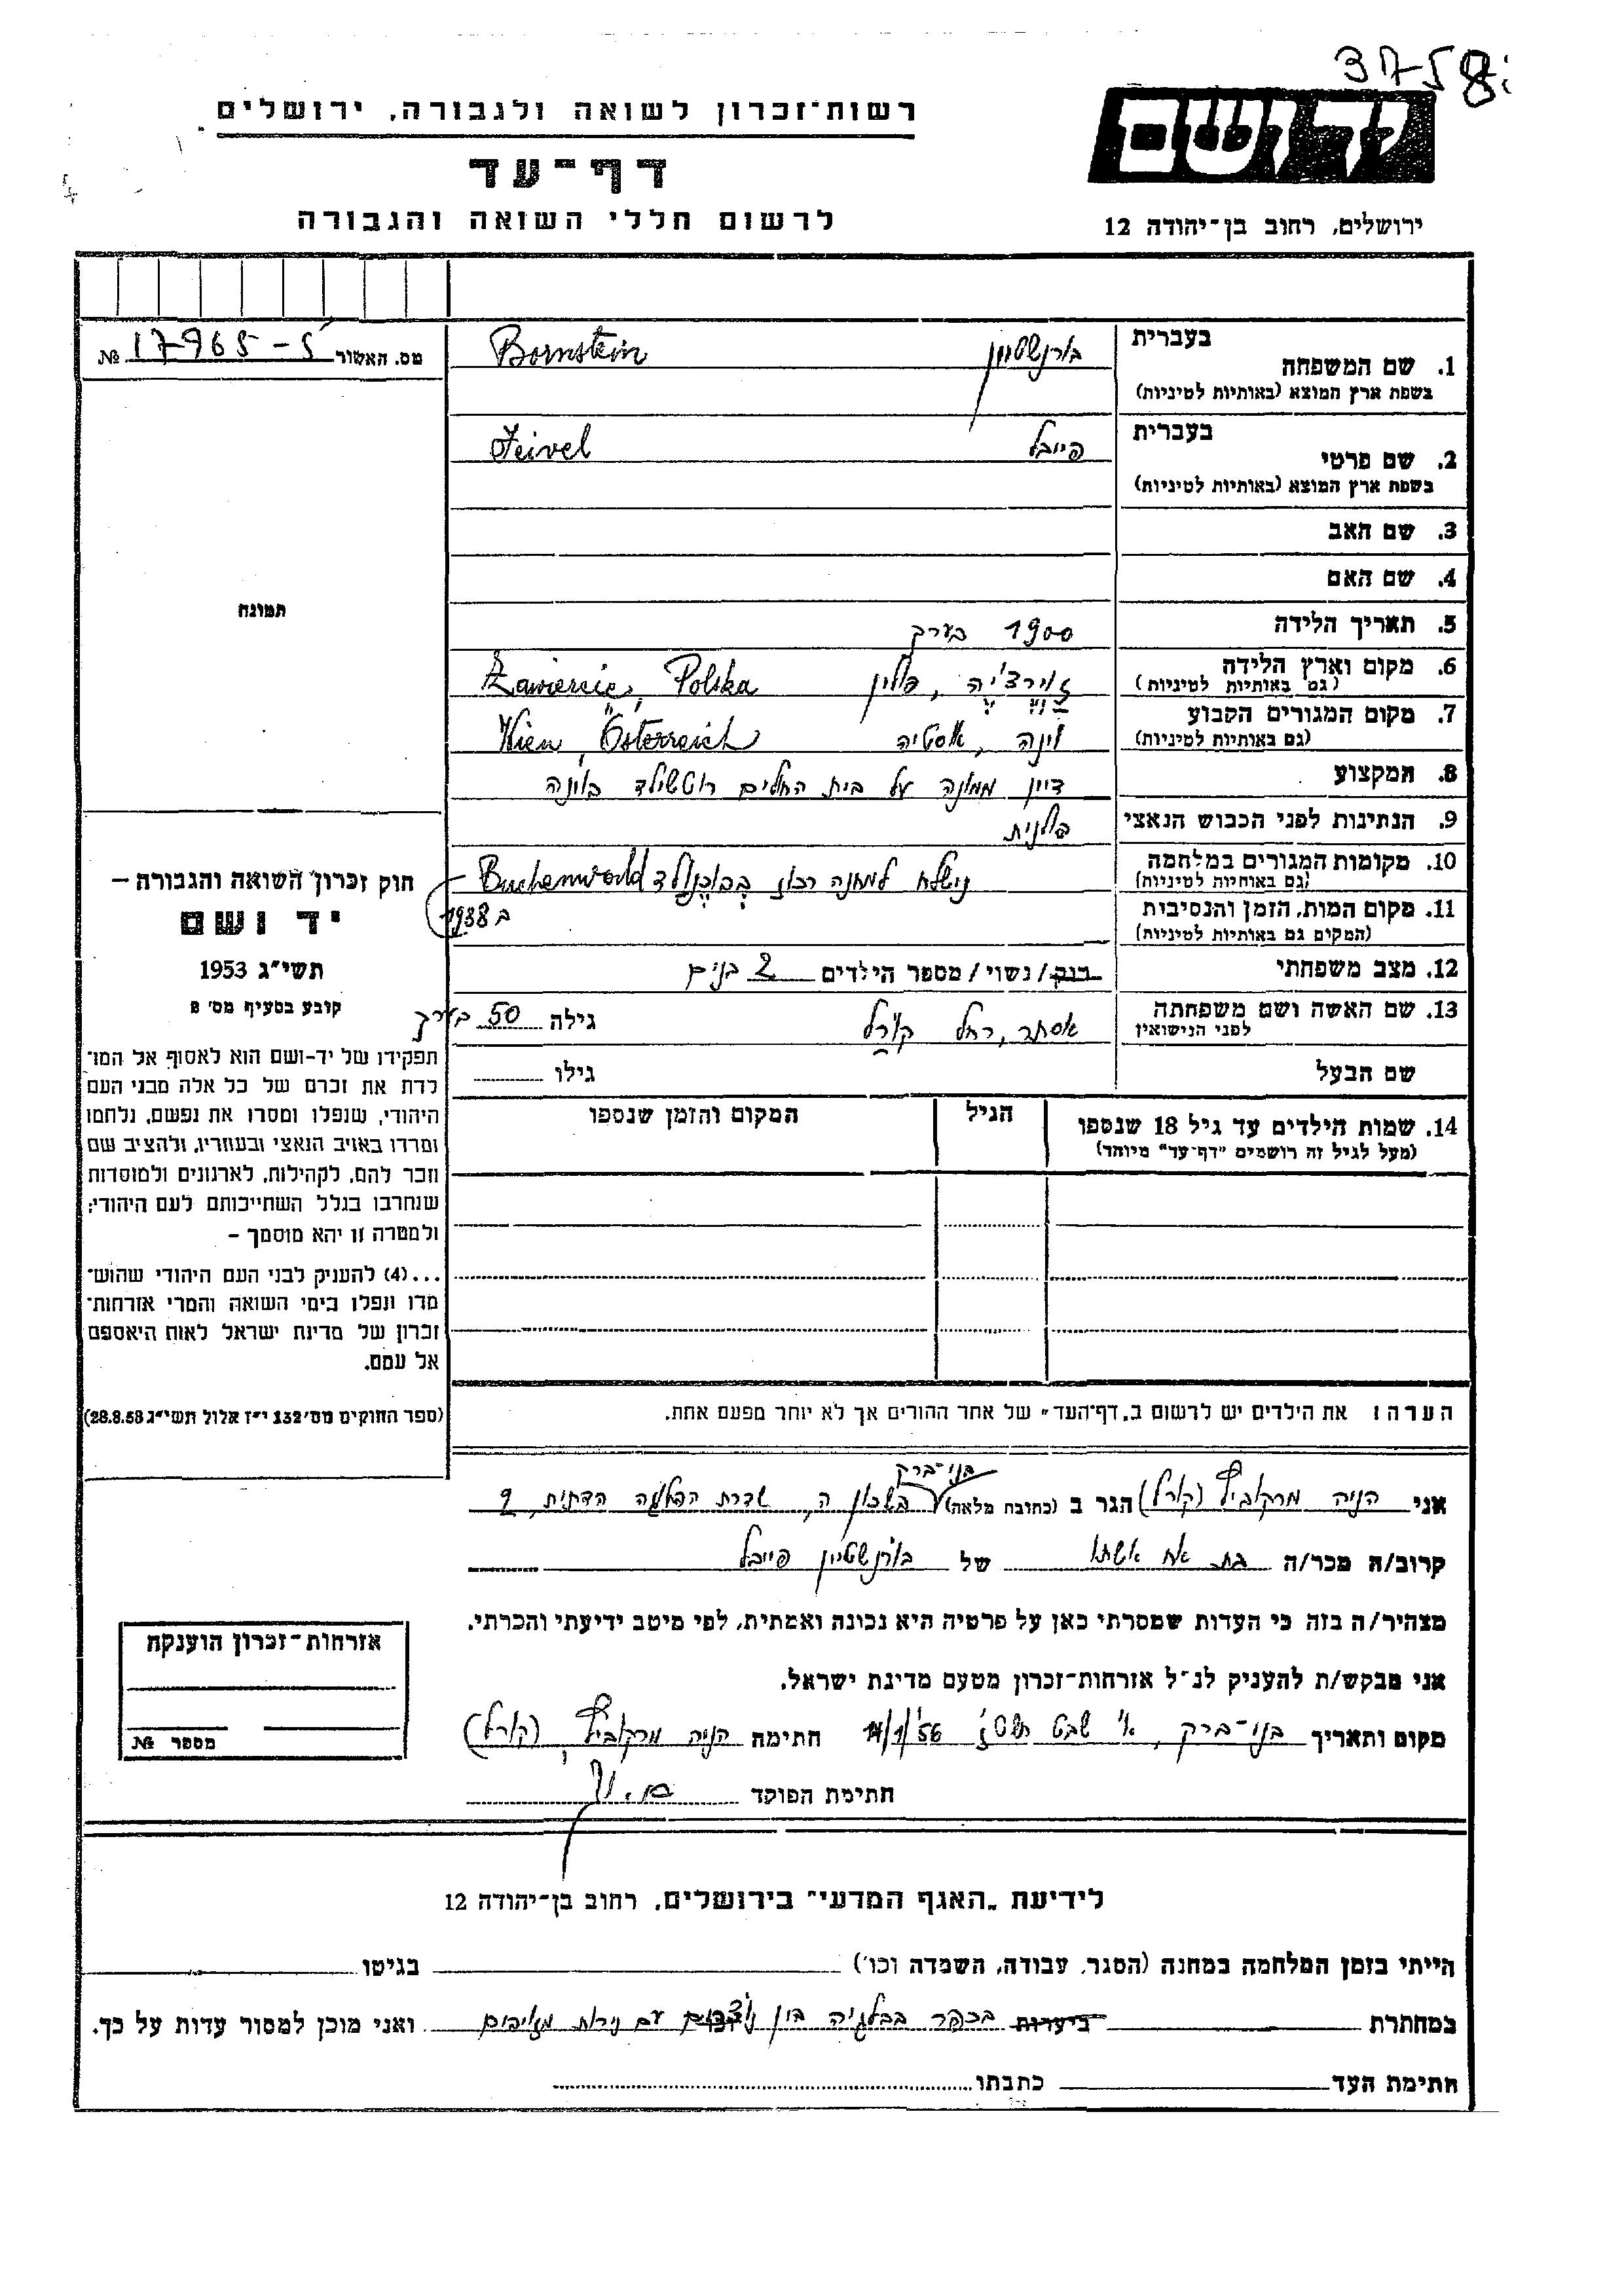 3758
רשות־זכרון לשואה ולגבורה, ירושלים
יד ושם
דף־עד
לרשום חללי השואה והגבורה
ירושלים, רחוב בן־יהודה 12
מס. האשור 17965-5 №
בעברית
1. שם המשפחה בורנשטיין Bornstein
בשפת ארץ המוצא (באותיות לטיניות)
בעברית
2. שם פרטי פייבל Feivel
בשפת ארץ המוצא (באותיות לטיניות)
3. שם האב
4. שם האם
5. תאריך הלידה 1900 בערך
6. מקום וארץ הלידה זוירצ'יה, פולין Zawiercie, Polska
(גם באותיות לטיניות)
7. מקום המגורים הקבוע וינה, אוסטריה Wien, Österreich
(גם באותיות לטיניות)
8. המקצוע דיין ממונה על בית החולים רוטשילד בוינה
9. הנתינות לפני הכבוש הנאצי פולנית
10. מקומות המגורים במלחמה נישלח למחנה רכוז בבוכנולד Buchenwald
(גם באותיות לטיניות)
ב 1938
11. מקום המות, הזמן והנסיבות
(המקום גם באותיות לטיניות)
12. מצב משפחתי רוק/נשוי/מספר הילדים 2 בנים
13. שם האשה ושם משפחתה אסתר, רחל קורל גילה 50 בערך
לפני הנישואין
שם הבעל גילו
14. שמות הילדים עד גיל 18 שנספו הגיל המקום והזמן שנספו
(מעל לגיל זה רושמים "דף־עד" מיוחד)
תמונה
חוק זכרון השואה והגבורה –
יד ושם
תשי"ג 1953
קובע בסעיף מס' 2
תפקידו של יד-ושם הוא לאסוף אל המו־
לדת את זכרם של כל אלה מבני העם
היהודי, שנפלו ומסרו את נפשם, נלחמו
ומרדו באויב הנאצי ובעוזריו, ולהציב שם
וזכר להם, לקהילות, לארגונים ולמוסדות
שנחרבו בגלל השתייכותם לעם היהודי;
ולמטרה זו יהא מוסמך –
...(4) להעניק לבני העם היהודי שהוש־
מדו ונפלו בימי השואה והמרי אזרחות־
זכרון של מדינת ישראל לאות היאספם
אל עמם.
(ספר החוקים מס' 132 י"ז אלול תשי"ג 28.8.53)
הערה: את הילדים יש לרשום ב„דף־העד" של אחד ההורים אך לא יותר מפעם אחת.
בני־ברק
אני הניה מרקוביץ (קורל) הגר ב (כתובת מלאה) בשכון ה, שדרת הפועלת הדתית, 9
קרוב/ה מכר/ה בת אח אשתו של בורנשטיין פייבל
מצהיר/ה בזה כי העדות שמסרתי כאן על פרטיה היא נכונה ואמתית, לפי מיטב ידיעתי והכרתי.
אני מבקש/ת להעניק לנ"ל אזרחות־זכרון מטעם מדינת ישראל.
מקום ותאריך בני־ברק, א' שבט 14/1/56 חתימה הניה מרקוביץ (קורל)
חתימת הפוקד
אזרחות־זכרון הוענקה
מספר №
לידיעת „האגף המדעי" בירושלים, רחוב בן־יהודה 12
הייתי בזמן המלחמה במחנה (הסגר, עבודה, השמדה וכו') בגיטו
במחתרת ביערות בכפר בבלגיה בין נוצרים עם נירות מזויפים ואני מוכן למסור עדות על כך.
חתימת העד כתבתו